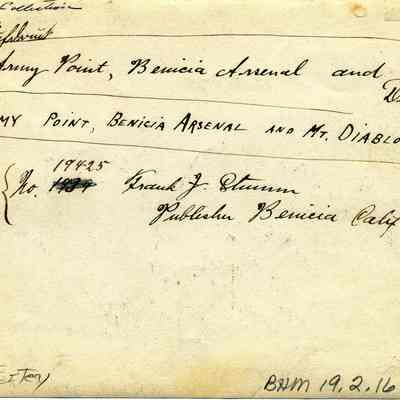 Collection
Army Point, Benicia Arsenal and
MY POINT, BENICIA ARSENAL AND MT. DIABLO
19425
No. Frank J. Stumm
Publisher Benicia Calif
BHM 19.2.16